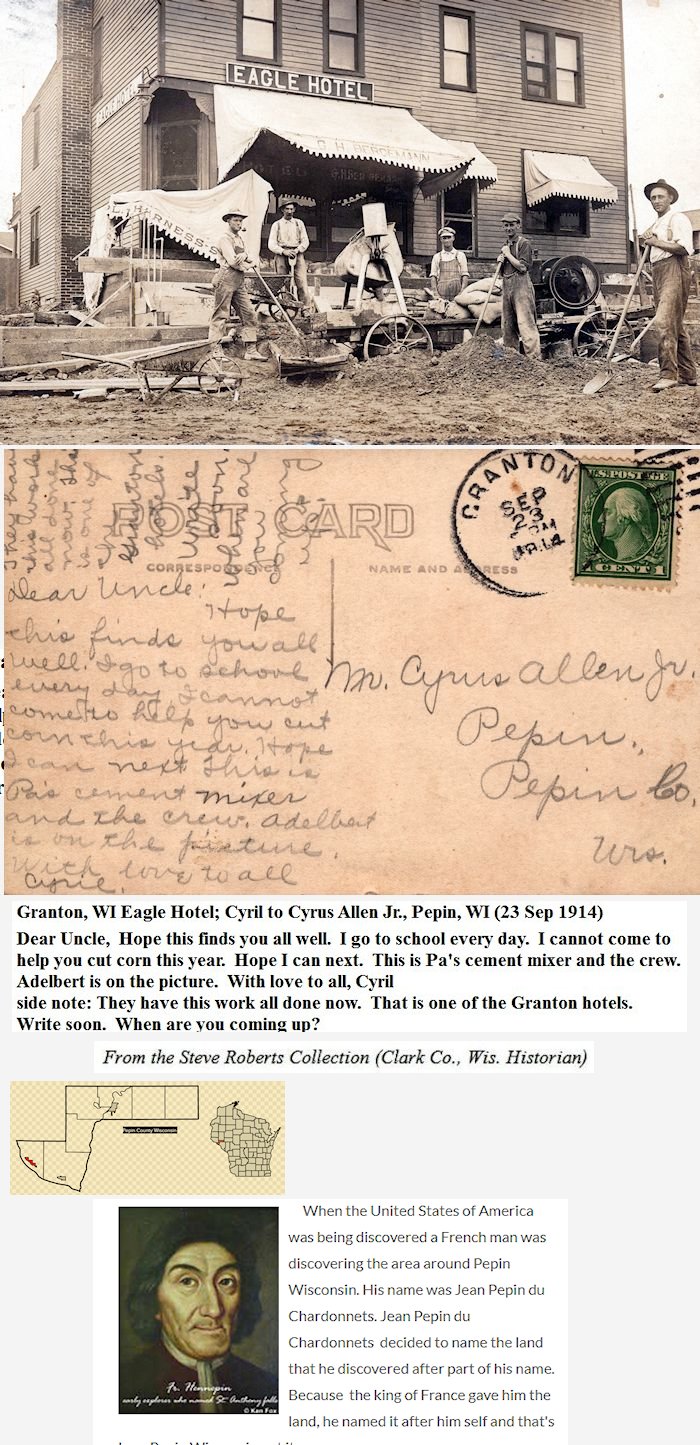 EAGLE HOTEL
EAGLE HOTEL
G. H. BERGEMANN
HARNESS-S
POST CARD
CORRESPONDENCE
NAME AND ADDRESS
GRANTON
SEP
23
1914
U.S. POSTAGE
1 CENTS 1
They have
this work
all done
now. This
is one of
the
Granton
hotels.
Write
soon.
When are
you
coming
up?
Dear Uncle:
Hope
this finds you all
well. I go to school
every day. I cannot
come to help you cut
corn this year. Hope
I can next This is
Pa's cement mixer
and the crew. Adelbert
is on the picture.
With love to all
Cyril.
Mr. Cyrus Allen Jr.
Pepin.,
Pepin Co,
Wis.
Granton, WI Eagle Hotel; Cyril to Cyrus Allen Jr., Pepin, WI (23 Sep 1914)
Dear Uncle, Hope this finds you all well. I go to school every day. I cannot come to
help you cut corn this year. Hope I can next. This is Pa's cement mixer and the crew.
Adelbert is on the picture. With love to all, Cyril
side note: They have this work all done now. That is one of the Granton hotels.
Write soon. When are you coming up?
From the Steve Roberts Collection (Clark Co., Wis. Historian)
Pepin County Wisconsin
Fr. Hennepin
early explorer who named St Anthony falls
© Kan Fox
When the United States of America
was being discovered a French man was
discovering the area around Pepin
Wisconsin. His name was Jean Pepin du
Chardonnets. Jean Pepin du
Chardonnets decided to name the land
that he discovered after part of his name.
Because the king of France gave him the
land, he named it after him self and that's